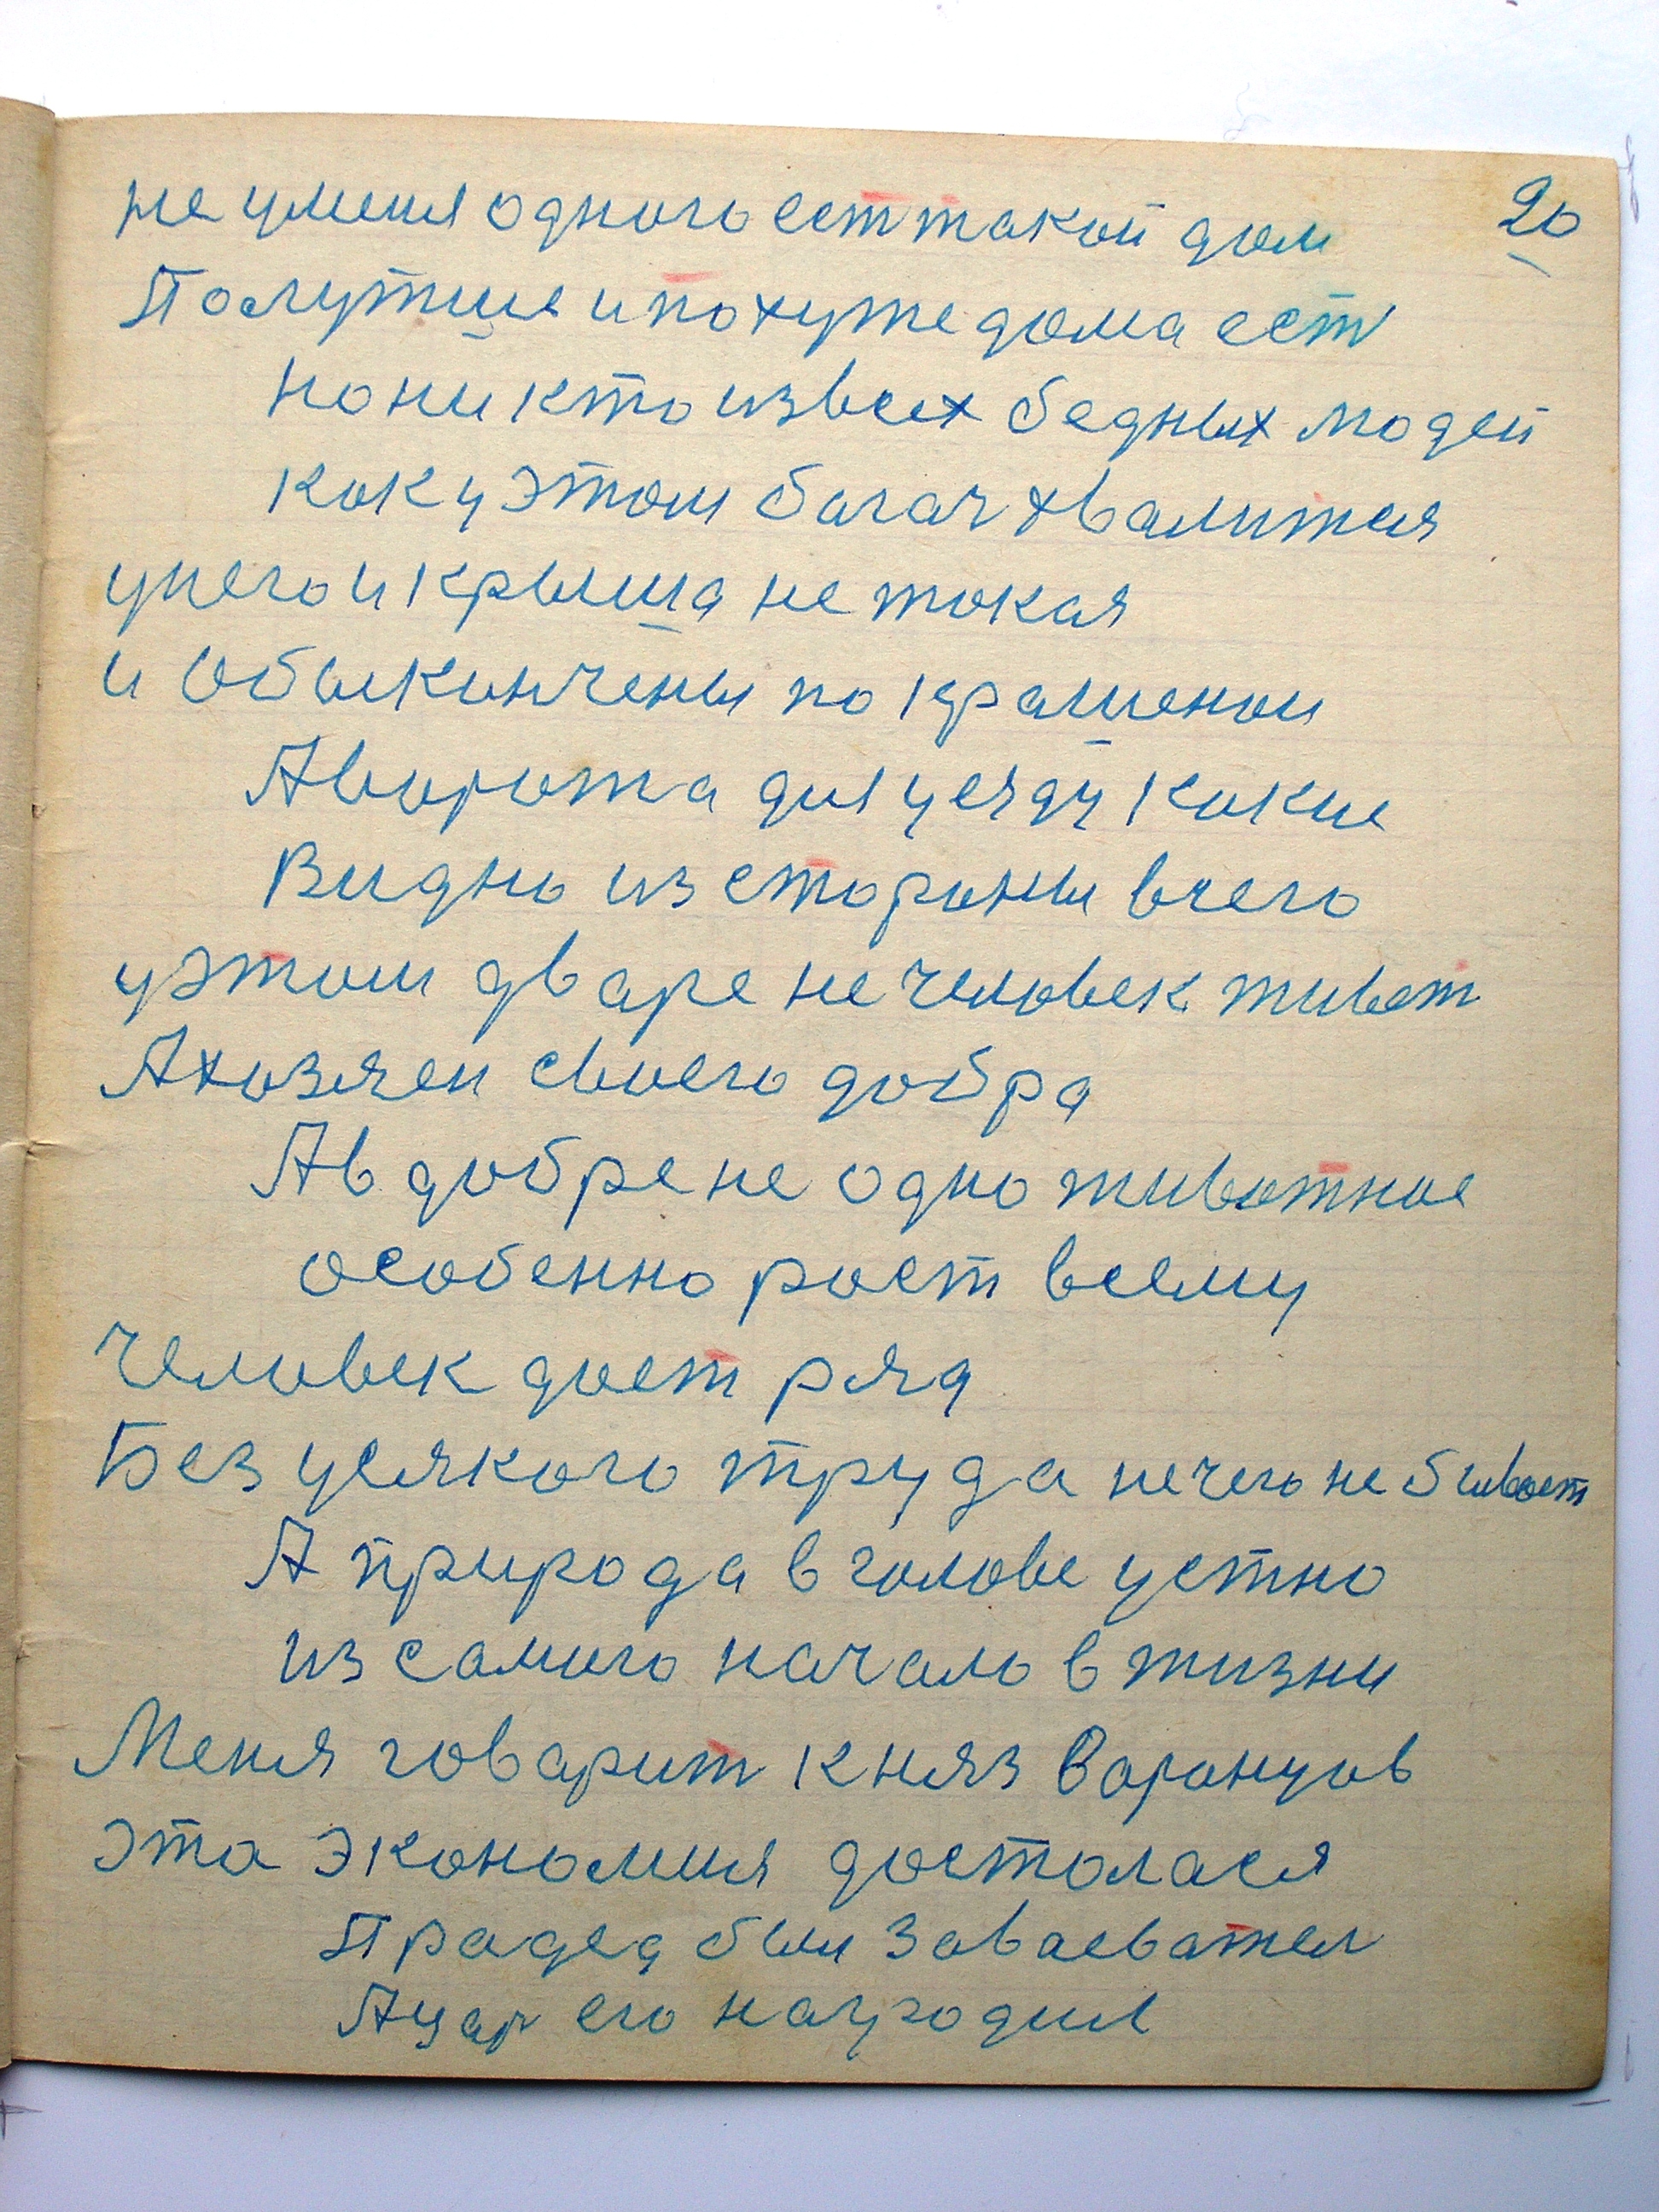 20
не уменя одного ест такой дом
Полутше и похуже дома ест
но ни кто из всех бедных людей
как у этом багач хвалится
у него и крыша не токая
и
по крашенои
Аворота для уезду какие
Видно из стороны всего
у этом дваре не человек живет
Ахозяен своего добра
Ав добре не одно животное
особенно рост всему
Человек дает ряд
Без усякого труда нечего не бывает
А природа в голове устно
из самого начало в жизни
Меня говарит княз Варонцов
эта экономия досталася
Прадед был Заваевател
Ацар его наградил